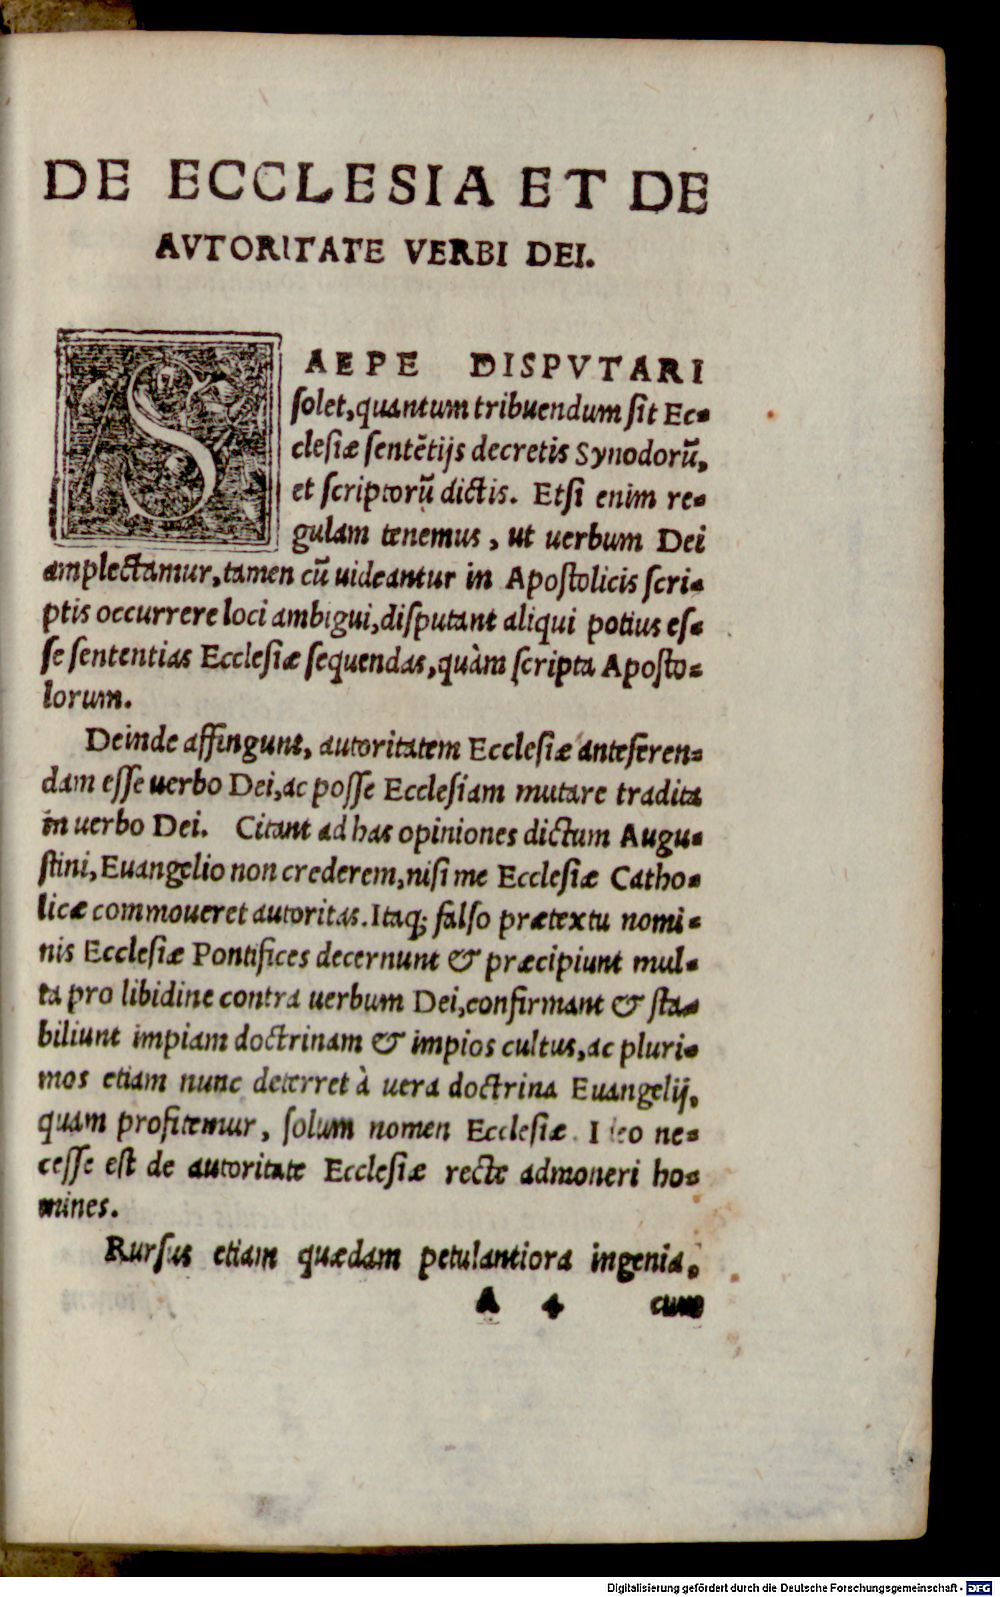 DE ECCLESIA ET DE
AVTORITATE VERBI DEI.
SAEPE DISPVTARI
ſolet, quantum tribuendum ſit Ec-
cleſiæ ſentẽtijs decretis Synodorũ,
et ſcriptorũ dictis. Etſi enim re-
gulam tenemus, ut uerbum Dei
amplectamur, tamen cũ uideantur in Apoſtolicis ſcri-
ptis occurrere loci ambigui, diſputant aliqui potius eſ-
ſe ſententias Eccleſiæ ſequendas, quàm ſcripta Apoſto-
lorum.
Deinde affingunt, autoritatem Eccleſiæ anteferen-
dam eſſe uerbo Dei, ac poſſe Eccleſiam mutare tradita
in uerbo Dei. Citant ad has opiniones dictum Augu-
ſtini, Euangelio non crederem, niſi me Eccleſiæ Catho-
licæ commoueret autoritas. Itaq; falſo prætextu nomi-
nis Eccleſiæ Pontifices decernunt & præcipiunt mul-
ta pro libidine contra uerbum Dei, confirmant & ſta-
biliunt impiam doctrinam & impios cultus, ac pluri-
mos etiam nunc deterret à uera doctrina Euangelij,
quam profitemur, ſolum nomen Eccleſiæ. Ideo ne-
ceſſe eſt de autoritate Eccleſiæ recte admoneri ho-
mines.
Rurſus etiam quædam petulantiora ingenia,
A 4 cum
Digitalisierung gefördert durch die Deutsche Forschungsgemeinschaft - DFG